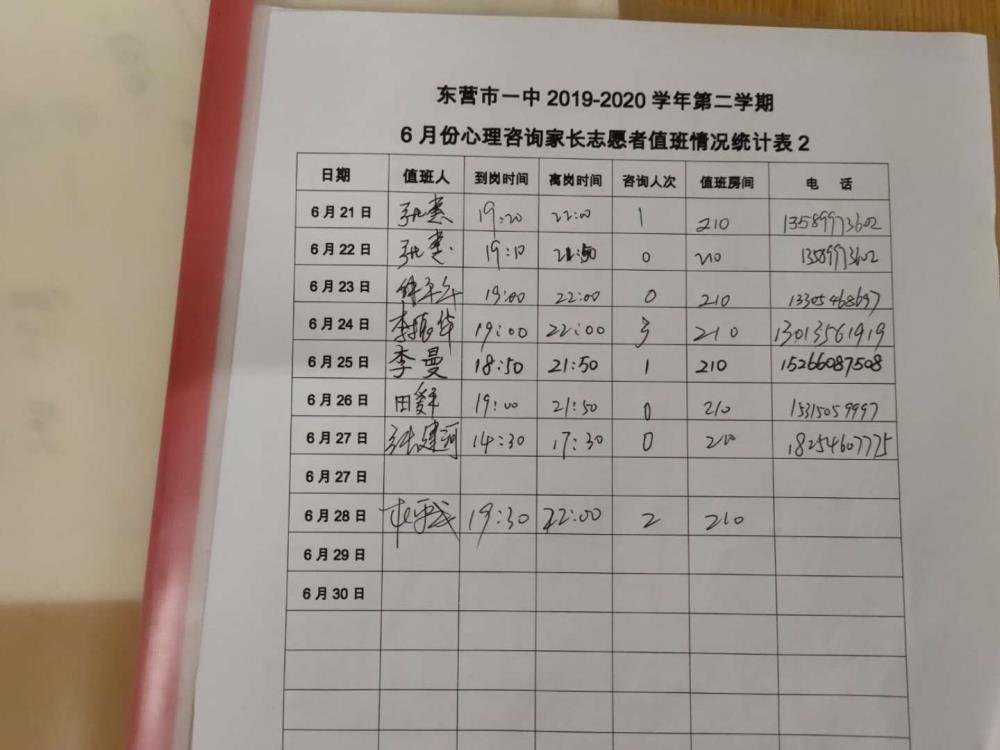 东营市一中 2019-2020 学年第二学期
6 月份心理咨询家长志愿者值班情况统计表 2
日期 值班人 到岗时间 离岗时间 咨询人次 值班房间 电 话
6 月 21 日 19:20 22:00 1 210 13589973602
6 月 22 日 19:10 21:50 0 210 13589973602
6 月 23 日 19:00 22:00 0 210 13305468697
6 月 24 日 李振华 19:00 22:00 3 210 13013561919
6 月 25 日 李曼 18:50 21:50 1 210 15266087508
6 月 26 日 19:00 21:50 0 210 15315059997
6 月 27 日 张建河 14:30 17:30 0 210 18254607775
6 月 27 日
6 月 28 日 19:30 22:00 2 210
6 月 29 日
6 月 30 日